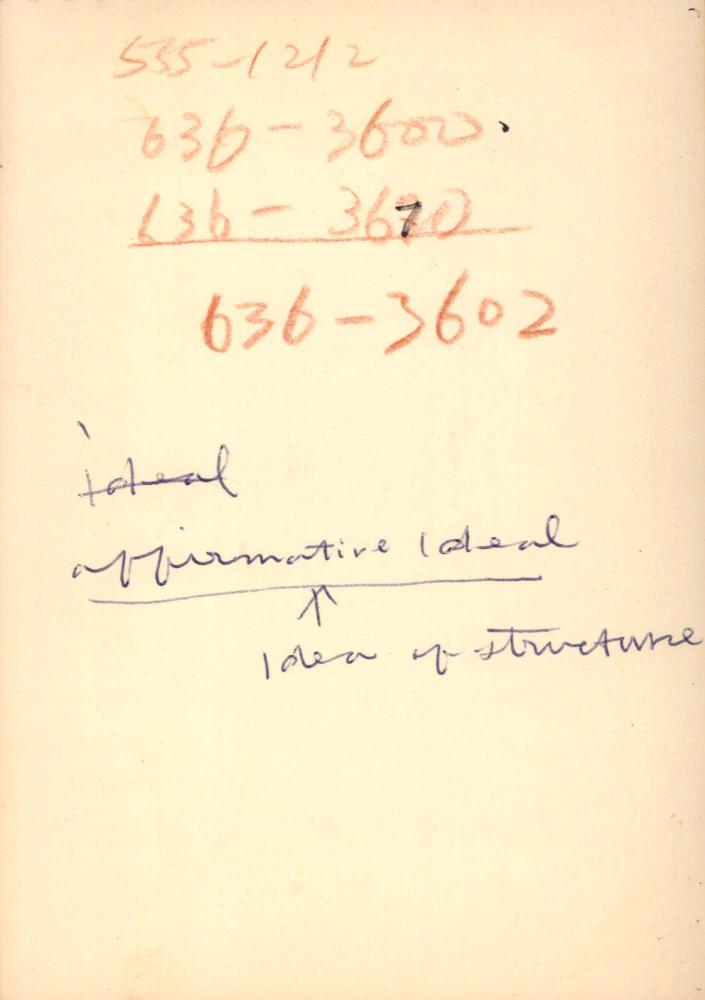 555-1212
636-3600
636-3670
636-3602
ideal
affirmative Ideal
↑
Idea of structure